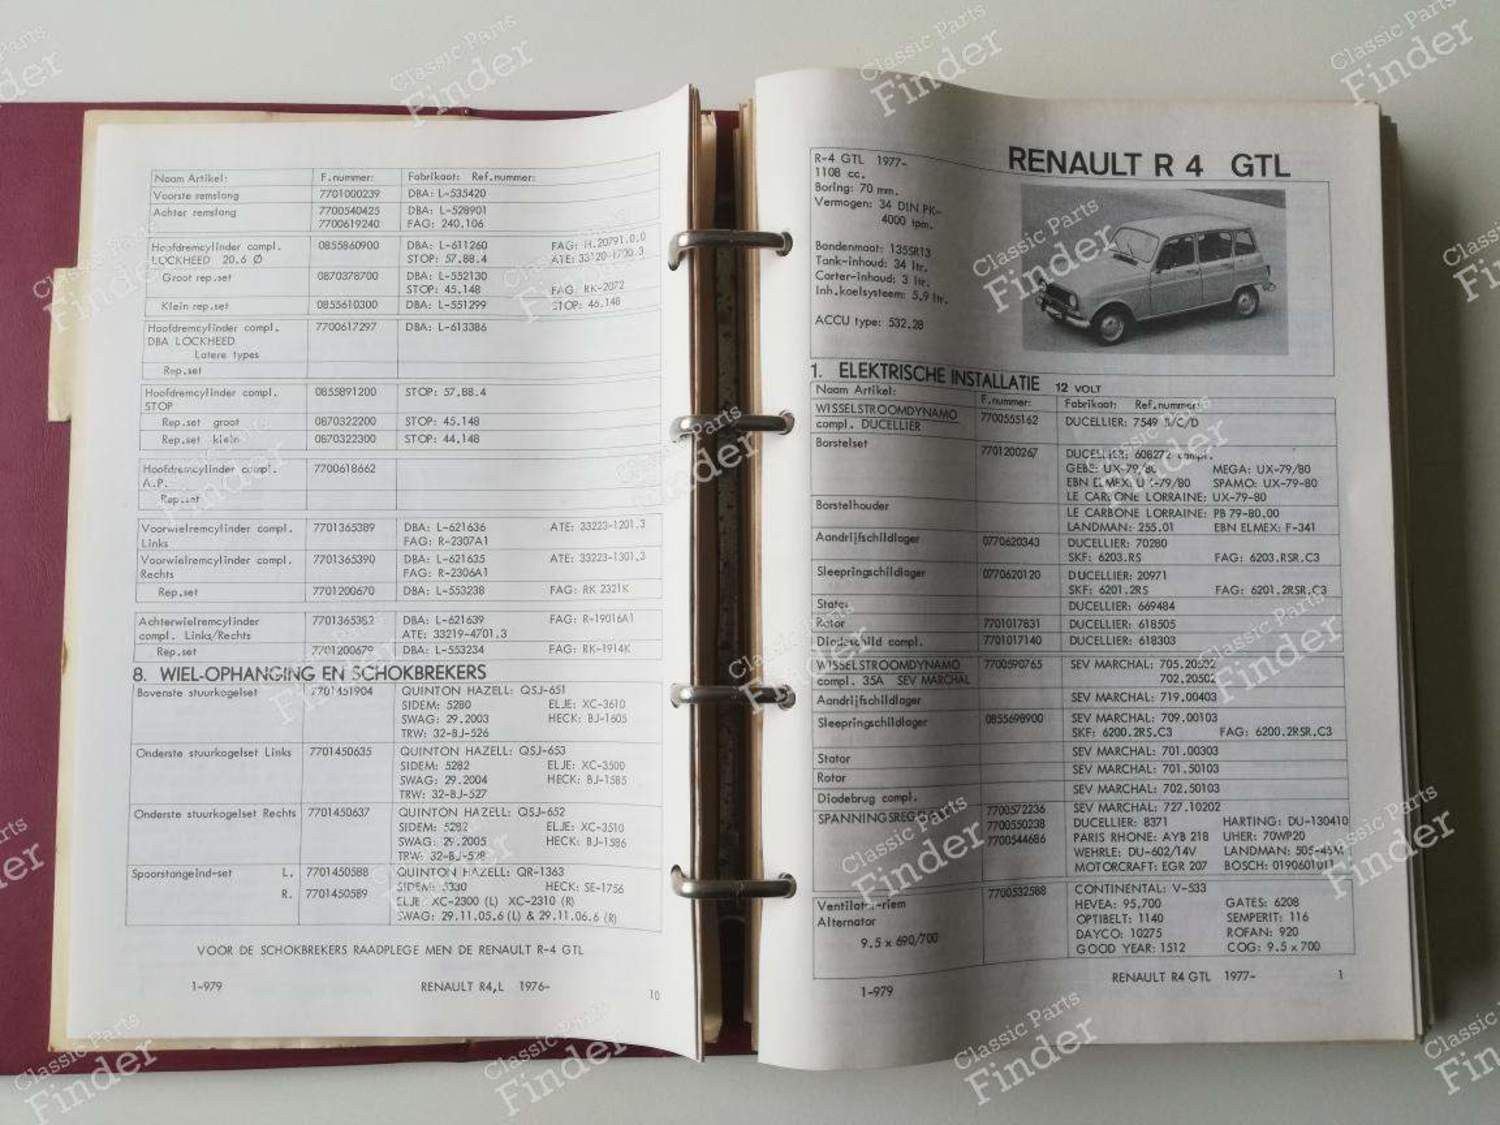 Naam Artikel: F.nummer: Fabrikaat: Ref.nummer:
Voorste remslang 7701000239 DBA: L-535420
Achter remslang 7700540425 DBA: L-528901
7700619240 FAG: 240.106
Hoofdremcylinder compl. 0855860900 DBA: L-611260 FAG: H.20791.0.0
LOCKHEED 20.6 Ø STOP: 57.88.4 ATE: 33120-1700.3
Groot rep.set 0870378700 DBA: L-552130
STOP: 45.148 FAG: RK-2072
Klein rep.set 0855610300 DBA: L-551299 STOP: 45.148
Hoofdremcylinder compl. 7700617297 DBA: L-613386
DBA LOCKHEED
Latere types
Rep.set
Hoofdremcylinder compl. 0855891200 STOP: 57.88.4
STOP
Rep.set groot 0870322200 STOP: 45.148
Rep.set klein 0870322300 STOP: 44.148
Hoofdremcylinder compl. 7700618662
A.P.
Rep.set
Voorwielremcylinder compl. 7701365389 DBA: L-621636 ATE: 33223-1201.3
Links FAG: R-2307A1
Voorwielremcylinder compl. 7701365390 DBA: L-621635 ATE: 33223-1301.3
Rechts FAG: R-2306A1
Rep.set 7701200670 DBA: L-553238 FAG: RK 2321K
Achterwielremcylinder 7701365382 DBA: L-621639 FAG: R-19016A1
compl. Links/Rechts ATE: 33219-4701.3
Rep.set 7701200679 DBA: L-553234 FAG: RK-1914K
8. WIEL-OPHANGING EN SCHOKBREKERS
Bovenste stuurkogelset 7701451904 QUINTON HAZELL: QSJ-651
SIDEM: 5280 ELJE: XC-3610
SWAG: 29.2003 HECK: BJ-1605
TRW: 32-BJ-526
Onderste stuurkogelset Links 7701450635 QUINTON HAZELL: QSJ-653
SIDEM: 5282 ELJE: XC-3500
SWAG: 29.2004 HECK: BJ-1585
TRW: 32-BJ-527
Onderste stuurkogelset Rechts 7701450637 QUINTON HAZELL: QSJ-652
SIDEM: 5282 ELJE: XC-3510
SWAG: 29.2005 HECK: BJ-1586
TRW: 32-BJ-528
Spoorstangeind-set L. 7701450588 QUINTON HAZELL: QR-1363
R. 7701450589 SIDEM: 5330 HECK: SE-1756
ELJE XC-2300 (L) XC-2310 (R)
SWAG: 29.11.05.6 (L) & 29.11.06.6 (R)
VOOR DE SCHOKBREKERS RAADPLEGE MEN DE RENAULT R-4 GTL
1-979 RENAULT R4,L 1976- 10
RENAULT R 4 GTL
R-4 GTL 1977-
1108 cc.
Boring: 70 mm.
Vermogen: 34 DIN PK-
4000 tpm.
Bandenmaat: 135SR13
Tank-inhoud: 34 ltr.
Carter-inhoud: 3 ltr.
Inh.koelsysteem: 5,9 ltr.
ACCU type: 532.28
1. ELEKTRISCHE INSTALLATIE 12 VOLT
Naam Artikel: F.nummer: Fabrikaat: Ref.nummer:
WISSELSTROOMDYNAMO 7700555162 DUCELLIER: 7549 B/C/D
compl. DUCELLIER
Borstelset 7701200267 DUCELLIER: 608272 compl.
GEBE: UX-79/80 MEGA: UX-79/80
EBN ELMEX: UX-79/80 SPAMO: UX-79-80
LE CARBONE LORRAINE: UX-79-80
Borstelhouder LE CARBONE LORRAINE: PB 79-80.00
LANDMAN: 255.01 EBN ELMEX: F-341
Aandrijfschildlager 0770620343 DUCELLIER: 70280
SKF: 6203.RS FAG: 6203.RSR.C3
Sleepringschildlager 0770620120 DUCELLIER: 20971
SKF: 6201.2RS FAG: 6201.2RSR.C3
Stator DUCELLIER: 669484
Rotor 7701017831 DUCELLIER: 618505
Diodeschild compl. 7701017140 DUCELLIER: 618303
WISSELSTROOMDYNAMO 7700590765 SEV MARCHAL: 705.20502
compl. 35A SEV MARCHAL 702.20502
Aandrijfschildlager SEV MARCHAL: 719.00403
Sleepringschildlager 0855698900 SEV MARCHAL: 709.00103
SKF: 6200.2RS.C3 FAG: 6200.2RSR.C3
Stator SEV MARCHAL: 701.00303
Rotor SEV MARCHAL: 701.50103
Diodebrug compl. SEV MARCHAL: 702.50103
7700572236 SEV MARCHAL: 727.10202
7700550238 DUCELLIER: 8371 HARTING: DU-130410
7700544686 PARIS RHONE: AYB 218 UHER: 70WP20
WEHRLE: DU-602/14V LANDMAN: 505-45M
MOTORCRAFT: EGR 207 BOSCH: 0190601011
Ventilator-riem 7700532588 CONTINENTAL: V-533
Alternator HEVEA: 95,700 GATES: 6208
9.5 x 690/700 OPTIBELT: 1140 SEMPERIT: 116
DAYCO: 10275 ROFAN: 920
GOOD YEAR: 1512 COG: 9.5 x 700
1-979 RENAULT R4 GTL 1977- 1
Classic Parts
Finder